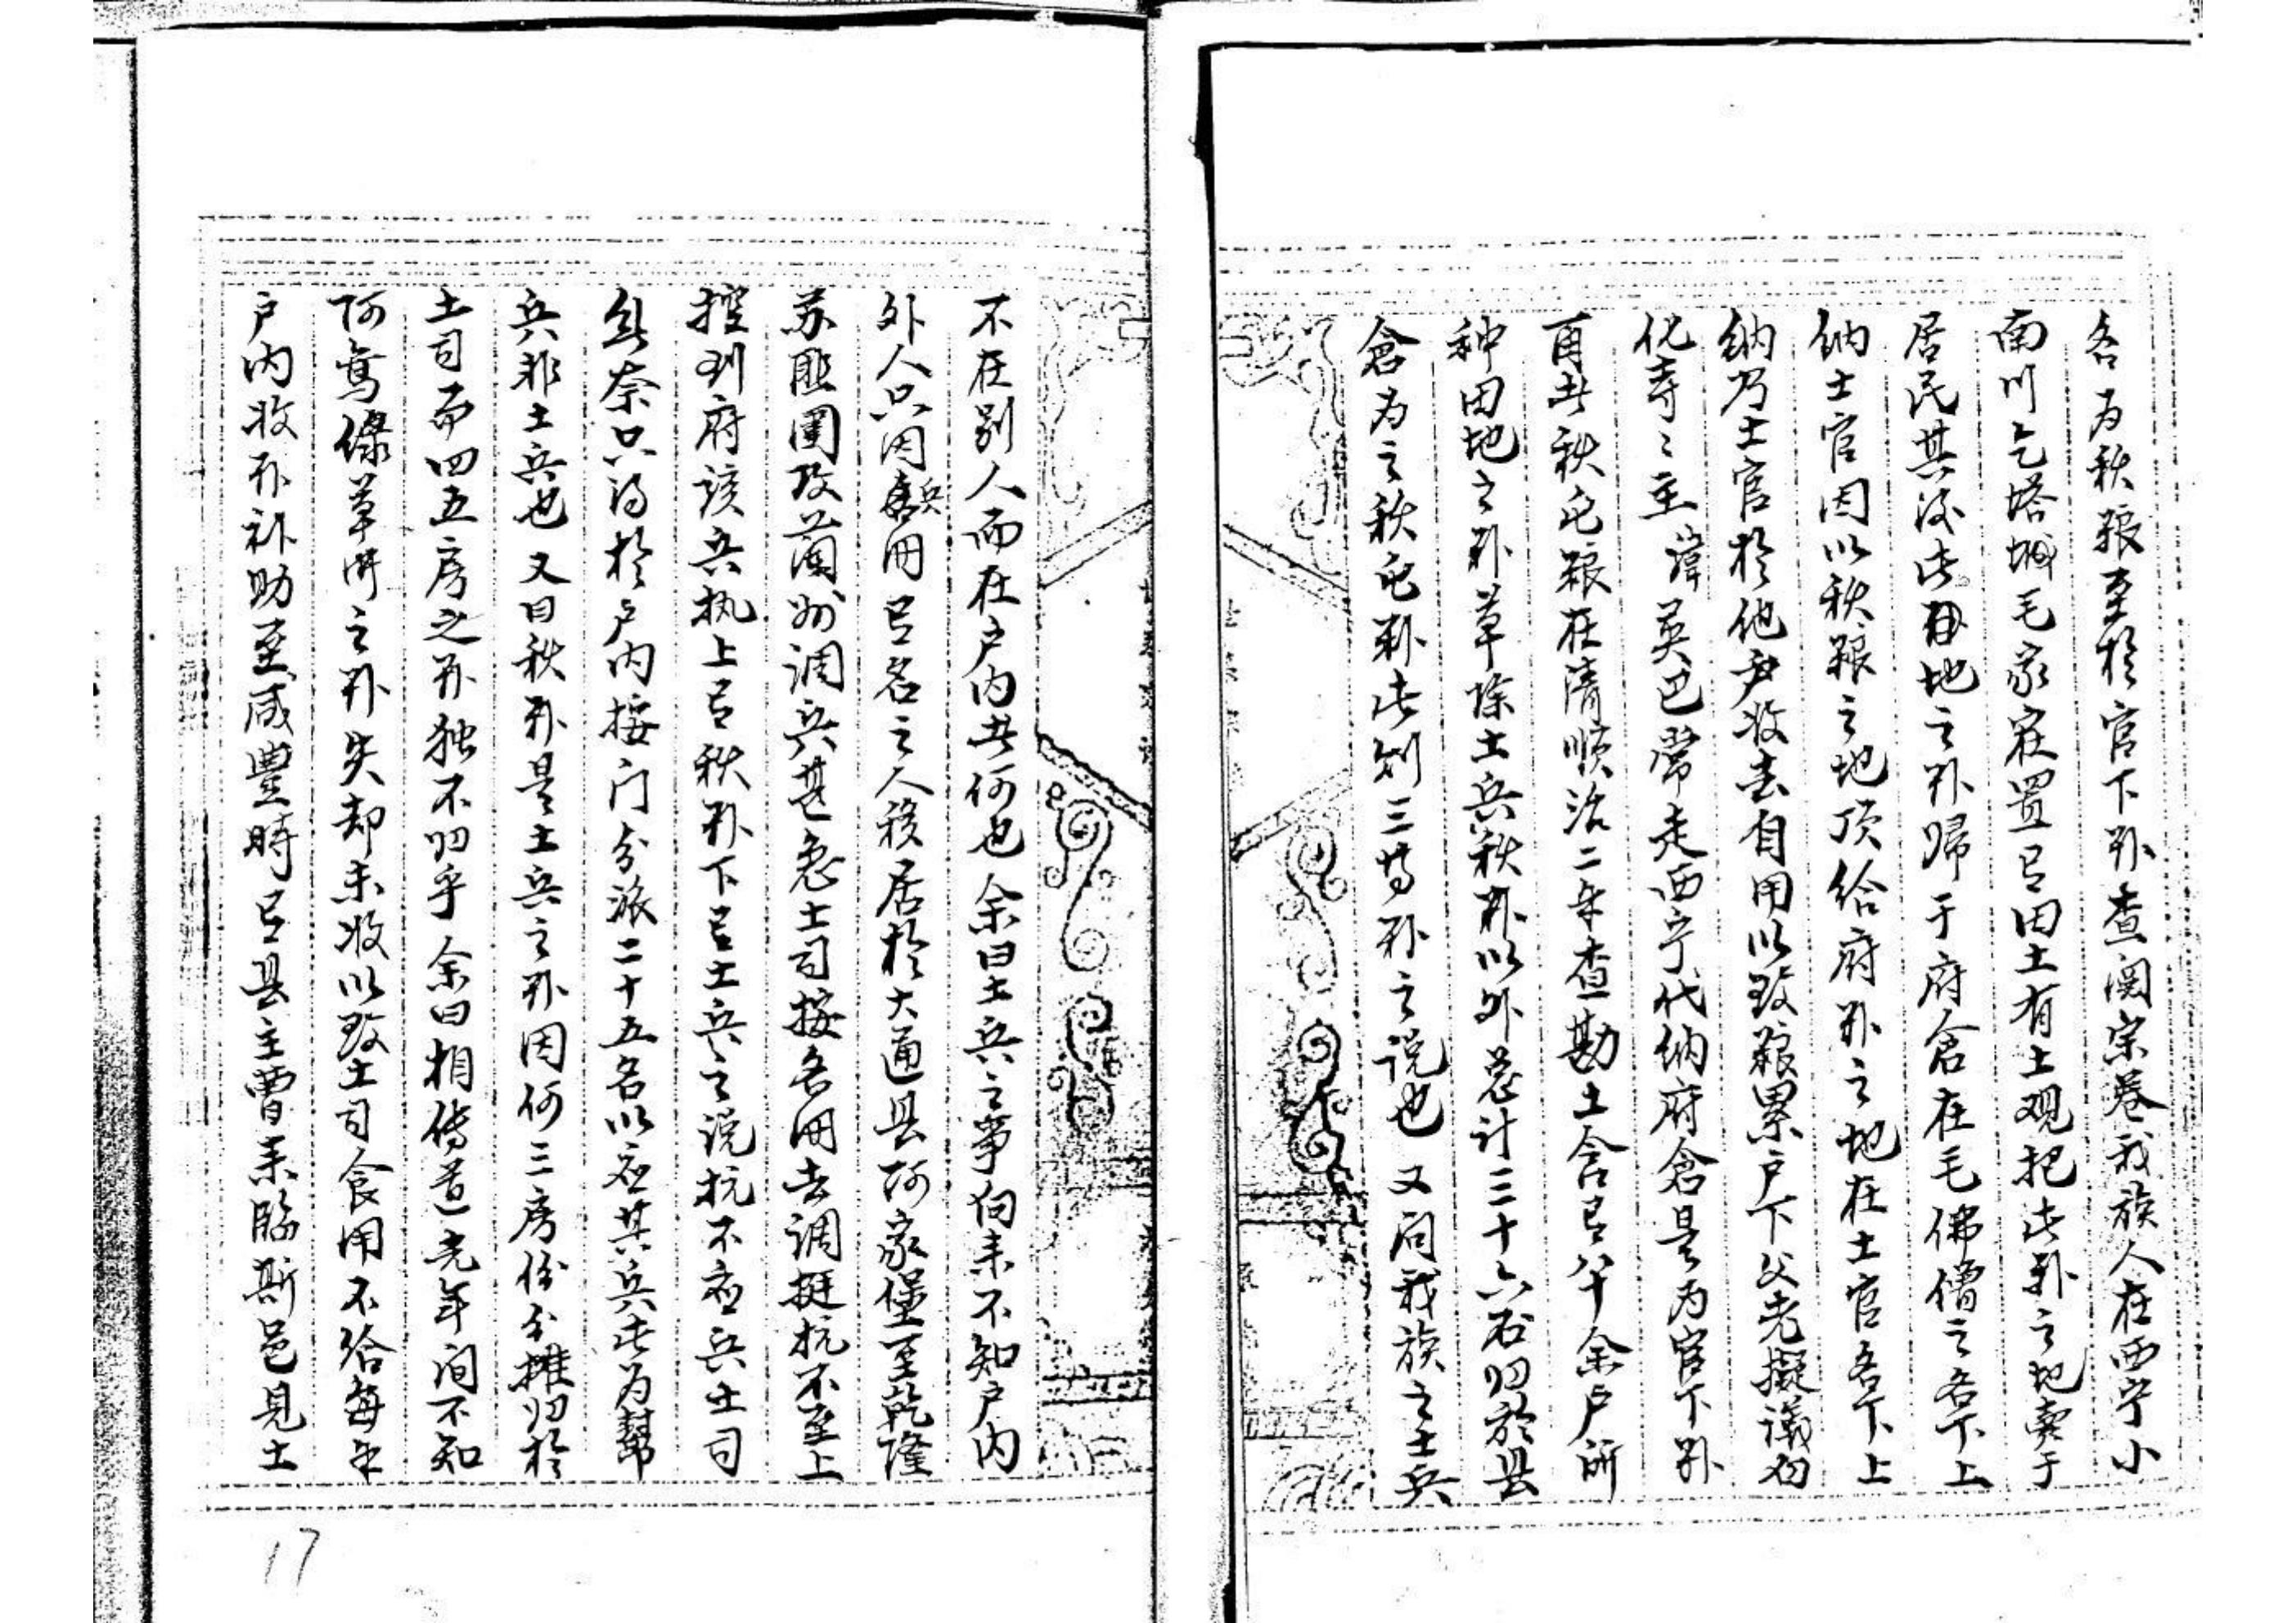 名为秋粮至於官下粮查阅宗卷我族人在西宁小
南川乞塔城毛家寨置已田土有土观把此粮之地卖于
居民其后此田地之粮歸于府仓在毛佛僧之名下上
纳土官因以秋粮之地顶给府粮之地在土官名下上
纳乃土官於他户收去自用以致粮累户下父老擬議
化寺之主諱英巴常走西宁代纳府倉是为官下粮
再者秋屯粮在清順治二年查勘土舍已八十余户所
种田地之粮草除土兵秋粮以外总计三十六石归於县
倉为之秋屯粮此则三等粮之说也 又问我族之土兵
不在别人而在户内者何也 余曰土兵之事向来不知户内
外人只因兵用已名之人移居於大通县阿家堡至乾隆
苏匪围攻蘭州调兵甚急土司按名册去调挺抗不至上
控到府该兵执上已秋粮下已土兵之说抗不应兵土司
無奈只得於户内按门分派二十五名以应其兵此为幫
兵非土兵也 又曰秋粮是土兵之粮因何三房份分摊归於
土司而四五房之粮独不归乎 余曰相传道光年间不知
阿寫條草所之粮失却未收以致土司食用不给每年
户内收粮补助至咸豐時已县主曹来臨斯邑見土
17